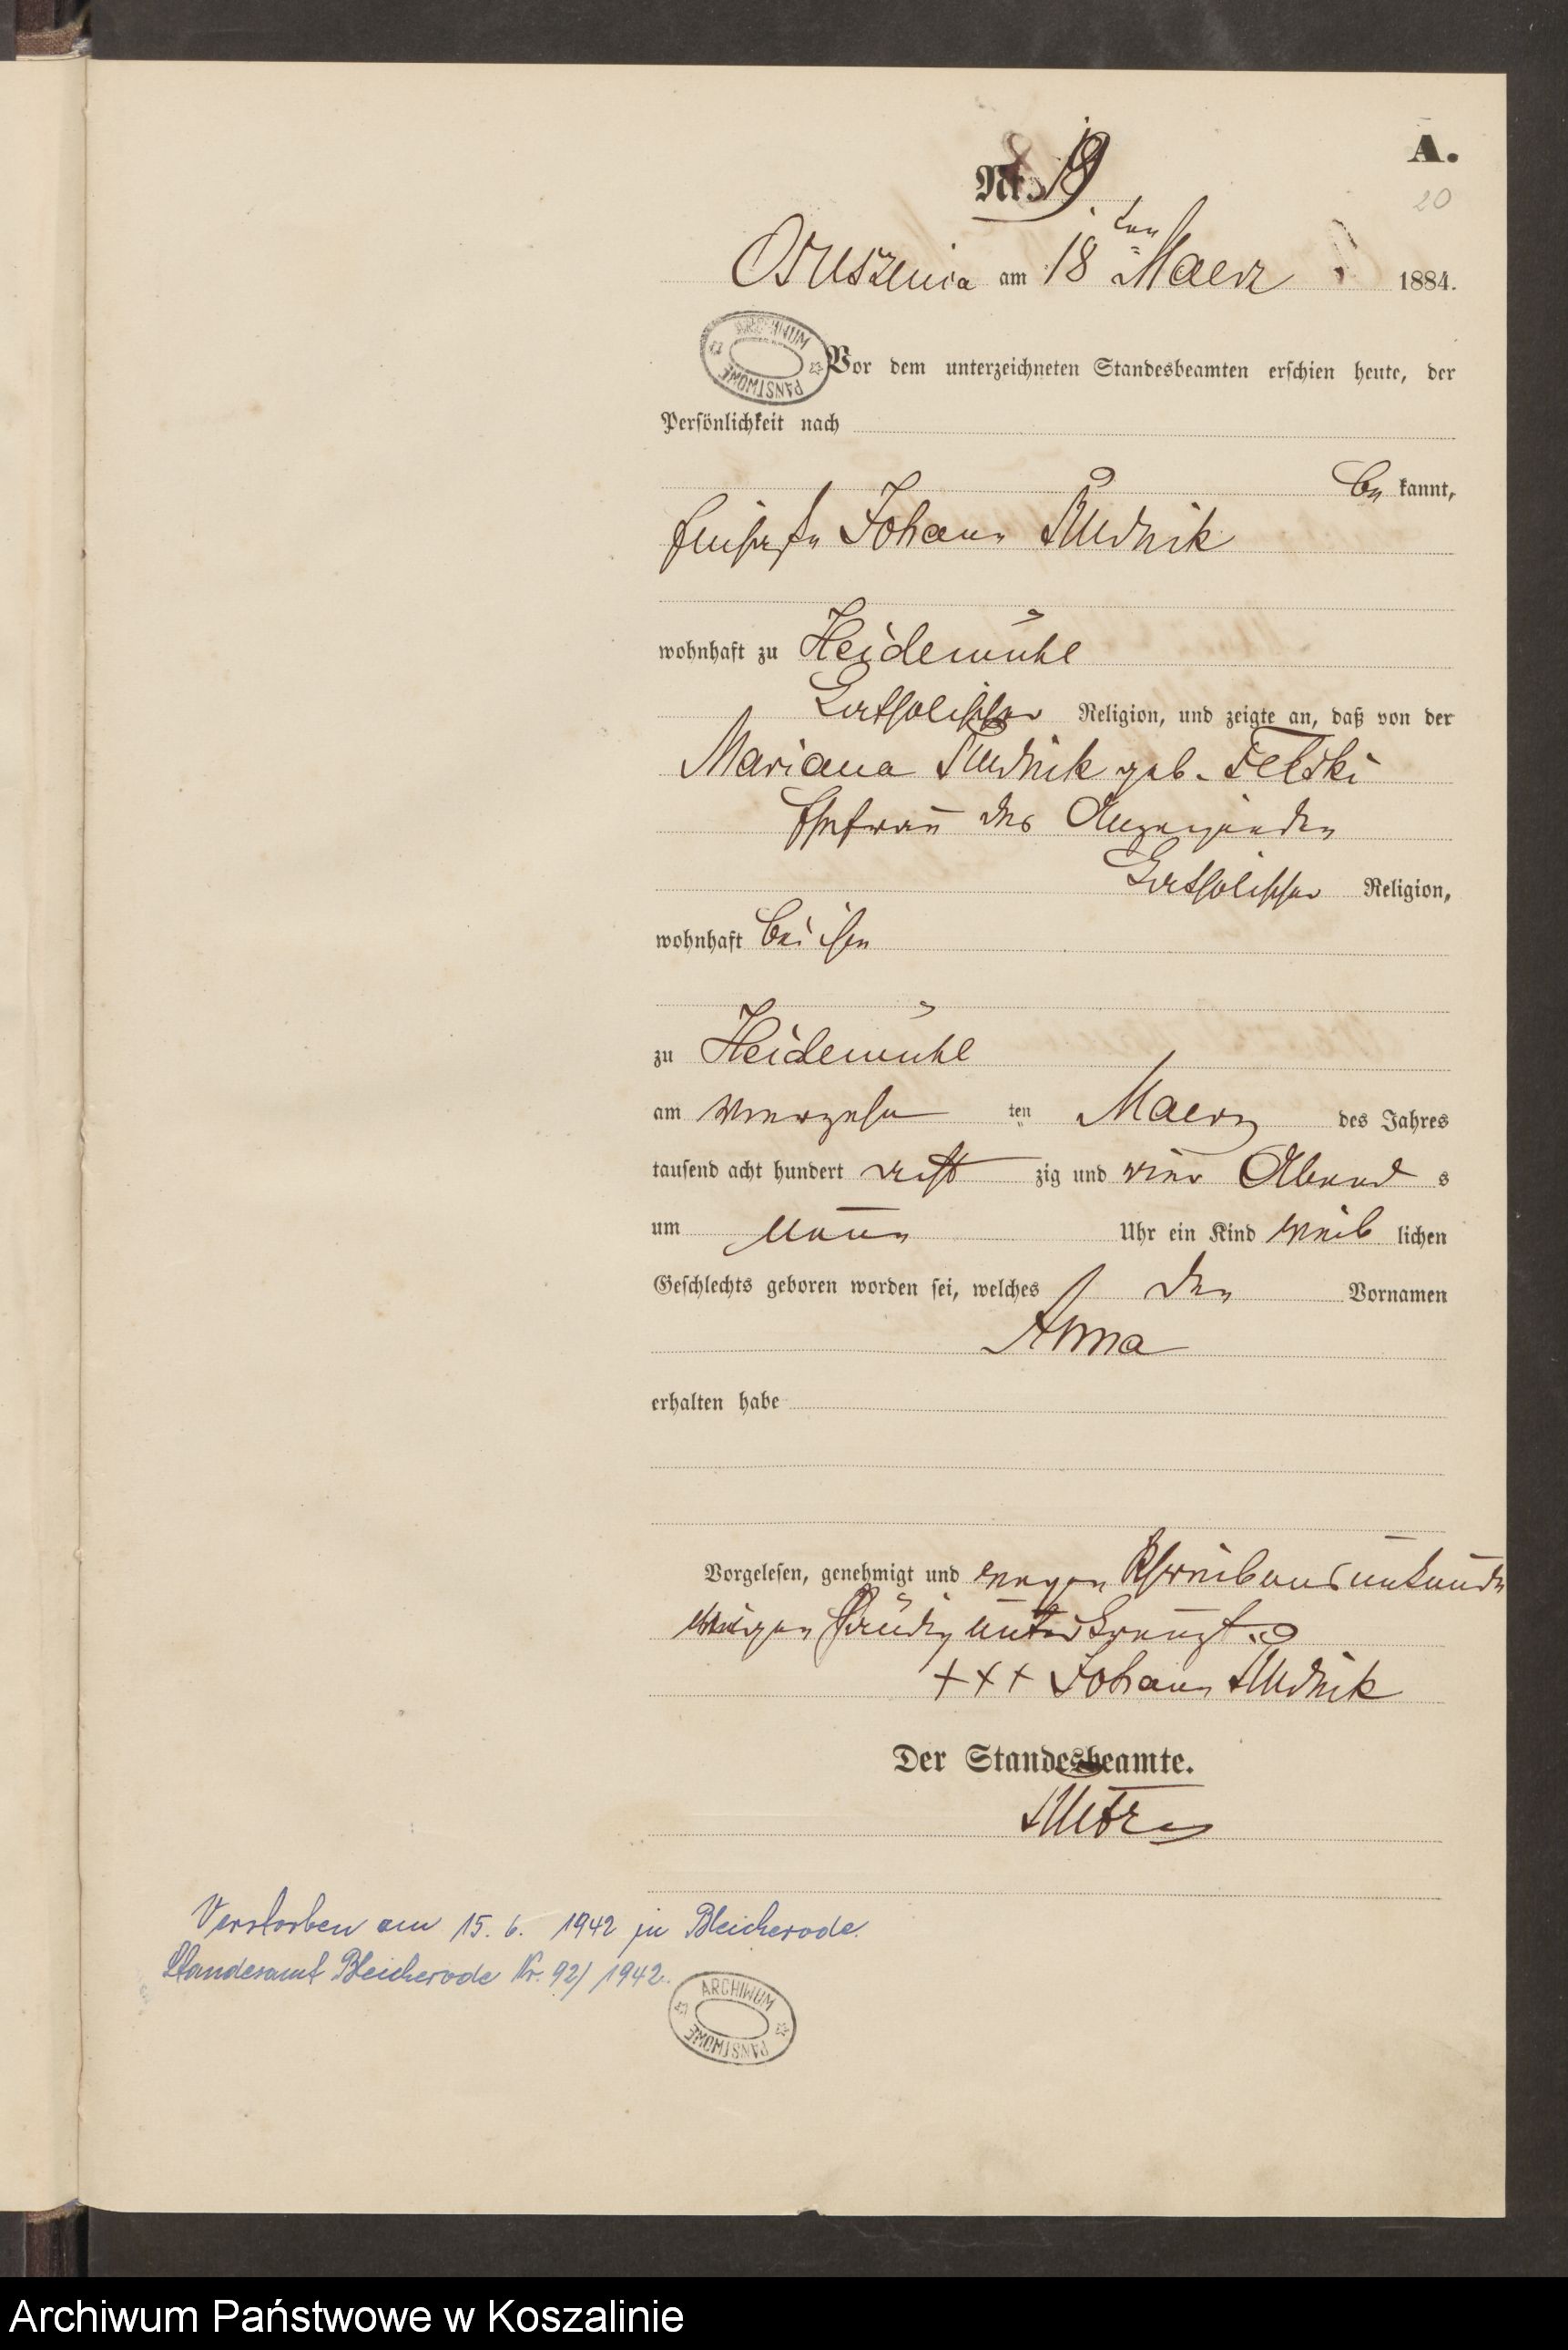 A.
Nr. 19
20
Osusznica am 18ten Maerz 1884.
ARCHIWUM PAŃSTWOWE
Vor dem unterzeichneten Standesbeamten erschien heute, der
Persönlichkeit nach
be kannt,
Johann Rudnik
wohnhaft zu Heidemühl
katholischer Religion, und zeigte an, daß von der
Mariana Rudnik geb. Felski
Ehefrau des Anzeigenden
katholischer Religion,
wohnhaft bei ihm
zu Heidemühl
am vierzehn ten Maerz des Jahres
tausend acht hundert acht zig und vier Abend s
um neun Uhr ein Kind weib lichen
Geschlechts geboren worden sei, welches den Vornamen
Anna
erhalten habe
Vorgelesen, genehmigt und wegen Schreibensunkunde
unterkreuzt.
+++ Johann Rudnik
Der Standesbeamte.
Verstorben am 15. 6. 1942 in Bleicherode.
Standesamt Bleicherode Nr. 92/1942.
ARCHIWUM PAŃSTWOWE
Archiwum Państwowe w Koszalinie